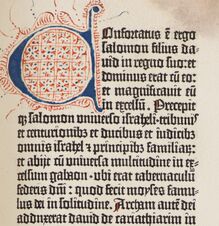 Confortatus ē ergo
salomon filius da-
uid in regno suo: et
dominus erat cū eo:
et magnificauit eum
in excelsū. Precepit-
q; salomon uniuerso israheli · tribunis
et centurionibus et ducibus et iudicibus
omnis israhel et principibus familiarū:
et abijt cū uniuersa multitudine in ex-
celsum gabaon · ubi erat tabernaculū
federis dm̄ : quod fecit moyses famu-
lus dei in solitudine. Archam autē dei
adduxerat dauid de cariathiarim in